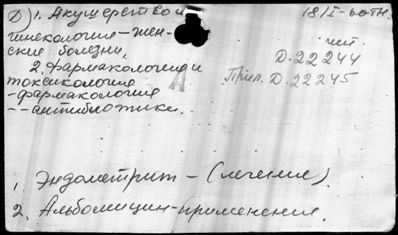 1. Акушерство и
гинекология-жен-
ские болезни,
2. фармакология и
токсикология
-фармакология
--антибиотики.
18/I-60
Д.22244
Д.22245
1. Эндометрит - (лечение).
2. Альбомицин-применение.